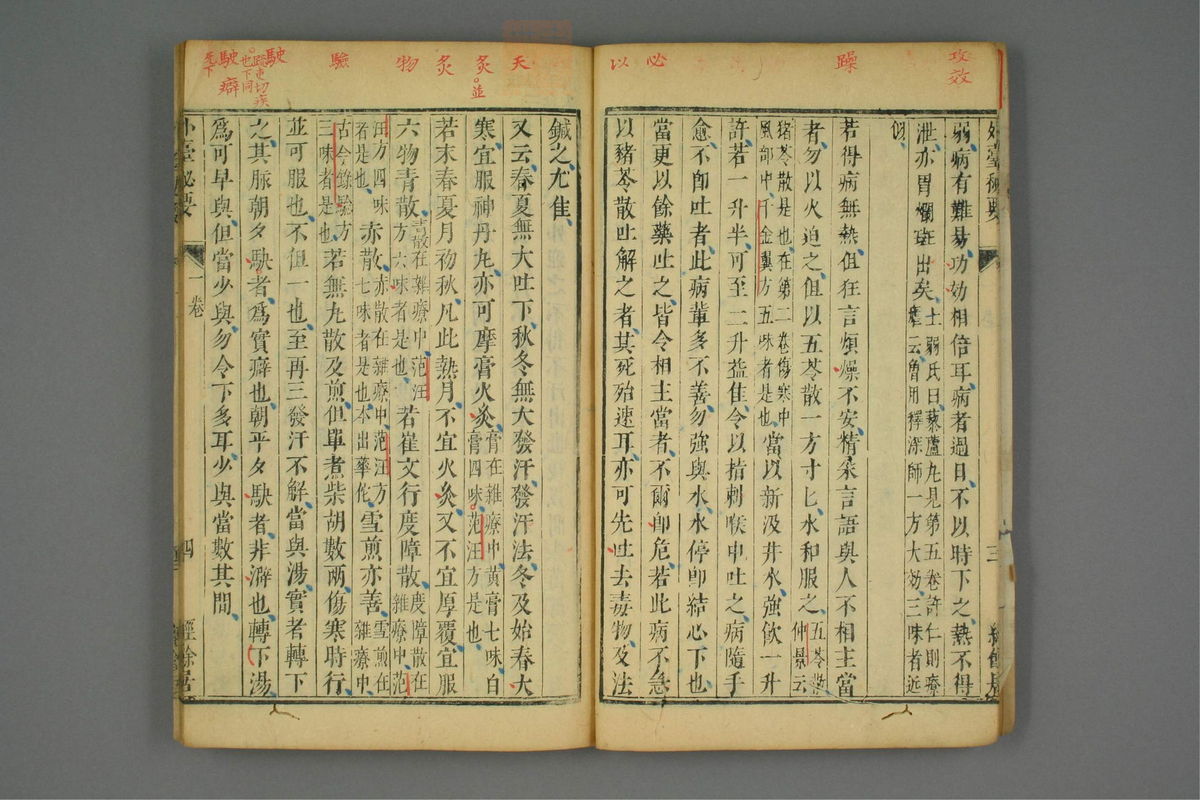 攻效
躁
必
以
弱病有難易功効相倍耳病者過日不以時下之熱不得
泄亦胃爛斑出矣士弱氏曰藜蘆丸見第五卷許仁則療
瘧云曾用釋深師一方大効三味者近
似
若得病無熱但狂言煩燥不安精彩言語與人不相主當
者勿以火迫之但以五苓散一方寸匕水和服之五苓散
仲景云
猪苓散是也在第二卷傷寒中
風部中千金翼方五味者是也當以新汲井水強飲一升
許若一升半可至二升益佳令以指刺喉中吐之病隨手
愈不卽吐者此病輩多不善勿強與水水停卽結心下也
當更以餘藥吐之皆令相主當者不爾卽危若此病不急
以豬苓散吐解之者其死殆速耳亦可先吐去毒物及法
天
灸
並
灸
物
驗
駛
疎吏切疾
也下同
駛癖
鍼之尤佳
又云春夏無大吐下秋冬無大發汗發汗法冬及始春大
寒宜服神丹丸亦可摩膏火灸膏在雜療中黃膏七味白
膏四味范汪方是也
若末春夏月初秋凡此熱月不宜火灸又不宜厚覆宜服
六物青散青散在雜療中范汪
方六味者是也若崔文行度障散度障散在
雜療中范
汪方四味
者是也赤散赤散在雜療中范汪方
七味者是也本出華佗雪煎亦善雪煎在
雜療中
古今錄驗方
三味者是也若無丸散及煎但單煮柴胡數兩傷寒時行
並可服也不但一也至再三發汗不解當與湯實者轉下
之其脉朝夕駃者爲實癖也朝平夕駃者非澼也轉下湯
爲可早與但當少與勿令下多耳少與當數其間
卷一
四
經餘居